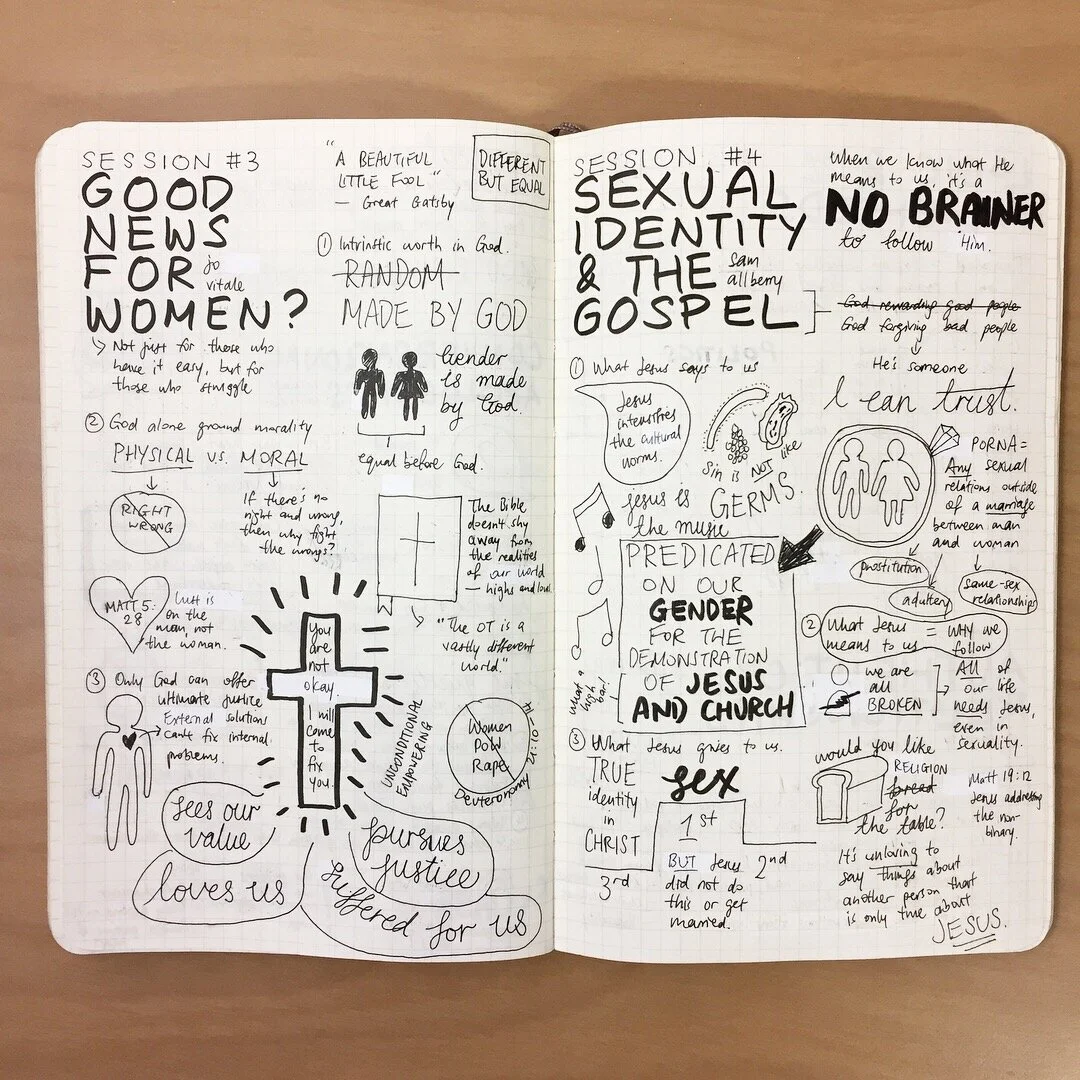 SESSION #3
GOOD
NEWS
FOR
WOMEN?
jo
vitale
↳ Not just for those who
have it easy, but for
those who struggle
"A BEAUTIFUL
LITTLE FOOL"
— Great Gatsby
DIFFERENT
BUT EQUAL
① Intrinstic worth in God.
RANDOM
MADE BY GOD
Gender
is made
by God.
equal before God.
② God alone ground morality
PHYSICAL v.s. MORAL
RIGHT
WRONG
If there's no
right and wrong,
then why fight
the wrongs?
The Bible
doesn't shy
away from
the realities
of our world
— highs and lows.
"The OT is a
vastly different
world."
MATT 5:
28
Lust is
on the
man, not
the woman.
③ Only God can offer
ultimate justice
External solutions
can't fix internal
problems.
You
are
not
okay.
I will
come
to
fix
you.
UNCONDITIONAL
EMPOWERING
Women
POW
Rape
Deuteronomy 21:10-14
sees our
value
loves us
pursues
justice
suffered for us
SESSION #4
SEXUAL
IDENTITY
& THE
GOSPEL
sam
allberry
when we know what He
means to us, it's a
NO BRAINER
to follow Him.
God rewarding good people
God forgiving bad people
He's someone
I can trust.
① What Jesus says to us
Jesus
intensifies
the cultural
norms.
Sin is NOT like
GERMS.
Jesus is
the music
PREDICATED
ON OUR
GENDER
FOR THE
DEMONSTRATION
OF JESUS
AND CHURCH
what a
high
bar!
PORNA =
Any sexual
relations outside
of a marriage
between man
and woman
prostitution
adultery
same-sex
relationships
② What Jesus = WHY we
means to us follow
we are
all
BROKEN
All of
our life
needs Jesus,
even in
sexuality.
③ What Jesus gives to us.
TRUE
identity
in
CHRIST
3rd
sex
1st
BUT Jesus
did not do
this or get
married.
2nd
would you like
RELIGION
bread
for
the table?
Matt 19:12
Jesus addressing
the non-
binary.
It's unloving to
say things about
another person that
is only true about
JESUS.